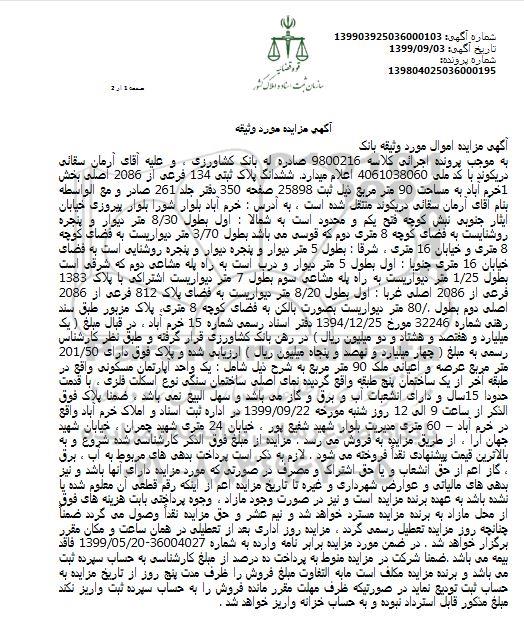 شماره آگهی: 139903925036000103
تاریخ آگهی: 1399/09/03
شماره پرونده:
139804025036000195
قوه قضائیه
سازمان ثبت اسناد و املاک کشور
صفحه 1 از 2
آگهی مزایده مورد وثیقه
آگهی مزایده اموال مورد وثیقه بانک
به موجب پرونده اجرائی کلاسه 9800216 صادره له بانک کشاورزی ، و علیه آقای آرمان سقانی
دریکوند با کد ملی 4061038060 اعلام میدارد. ششدانگ پلاک ثبتی 134 فرعی از 2086 اصلی بخش
1خرم آباد به مساحت 90 متر مربع ذیل ثبت 25898 صفحه 350 دفتر جلد 261 صادر و مع الواسطه
بنام آقای آرمان سقانی دریکوند منتقل شده است ، به آدرس : خرم آباد بلوار شورا بلوار پیروزی خیابان
ایثار جنوبی نبش کوچه فتح یکم و محدود است به شمالا : اول بطول 8/30 متر دیوار و پنجره
روشنایست به فضای کوچه 8 متری دوم که قوسی می باشد بطول 3/70 متر دیواریست به فضای کوچه
8 متری و خیابان 16 متری ، شرقا : بطول 5 متر دیوار و پنجره دیوار و پنجره روشنایی است به فضای
خیابان 16 متری جنوبا : اول بطول 5 متر دیوار و درب است به راه پله مشاعی دوم که شرقی است
بطول 1/25 متر دیواریست به راه پله مشاعی سوم بطول 7 متر دیواریست اشتراکی با پلاک 1383
فرعی از 2086 اصلی غربا : اول بطول 8/20 متر دیواریست به فضای پلاک 812 فرعی از 2086
اصلی دوم بطول /80 متر دیواریست بصورت بالکن به فضای کوچه 8 متری، پلاک مزبور طبق سند
رهنی شماره 32246 مورخ 1394/12/25 دفتر اسناد رسمی شماره 15 خرم آباد ، در قبال مبلغ ( یک
میلیارد و هفتصد و هشتاد و دو میلیون ریال ) در رهن بانک کشاورزی قرار گرفته و طبق نظر کارشناس
رسمی به مبلغ ( چهار میلیارد و نهصد و پنجاه میلیون ریال ) ارزیابی شده و پلاک فوق دارای 201/50
متر مربع عرصه و اعیانی ملک 90 متر مربع به شرح ذیل شامل : یک واحد آپارتمان مسکونی واقع در
طبقه آخر از یک ساختمان پنج طبقه واقع گردیده نمای اصلی ساختمان سنگی نوع اسکلت فلزی ، با قدمت
حدودا 15سال و دارای انشعابات آب و برق و گاز می باشد و سهل البیع نمی باشد . ضمنا پلاک فوق
الذکر از ساعت 9 الی 12 روز شنبه مورخه 1399/09/22 در اداره ثبت اسناد و املاک خرم آباد واقع
در خرم آباد – 60 متری مدیریت بلوار شهید شفیع پور ، خیابان 24 متری شهید چمران ، خیابان شهید
جهان آرا ، از طریق مزایده به فروش می رسد . مزایده از مبلغ فوق الذکر کارشناسی شده شروع و به
بالاترین قیمت پیشنهادی نقداً فروخته می شود . لازم به ذکر است پرداخت بدهی های مربوط به آب ، برق
، گاز اعم از حق انشعاب و یا حق اشتراک و مصرف در صورتی که مورد مزایده دارای آنها باشد و نیز
بدهی های مالیاتی و عوارض شهرداری و غیره تا تاریخ مزایده اعم از اینکه رقم قطعی آن معلوم شده یا
نشده باشد به عهده برنده مزایده است و نیز در صورت وجود مازاد ، وجوه پرداختی بابت هزینه های فوق
از محل مازاد به برنده مزایده مسترد خواهد شد و نیم عشر و حق مزایده نقداً وصول می گردد ضمناً
چنانچه روز مزایده تعطیل رسمی گردد ، مزایده روز اداری بعد از تعطیلی در همان ساعت و مکان مقرر
برگزار خواهد شد . در ضمن مورد مزایده برابر نامه وارده به شماره 36004027-1399/05/20 فاقد
بیمه می باشد .ضمنا شرکت در مزایده منوط به پرداخت ده درصد از مبلغ کارشناسی به حساب سپرده ثبت
می باشد و برنده مزایده مکلف است مابه التفاوت مبلغ فروش را ظرف مدت پنج روز از تاریخ مزایده به
حساب ثبت تودیع نماید در صورتیکه ظرف مهلت مقرر مانده فروش را به حساب سپرده ثبت واریز نکند
مبلغ مذکور قابل استرداد نبوده و به حساب خزانه واریز خواهد شد .